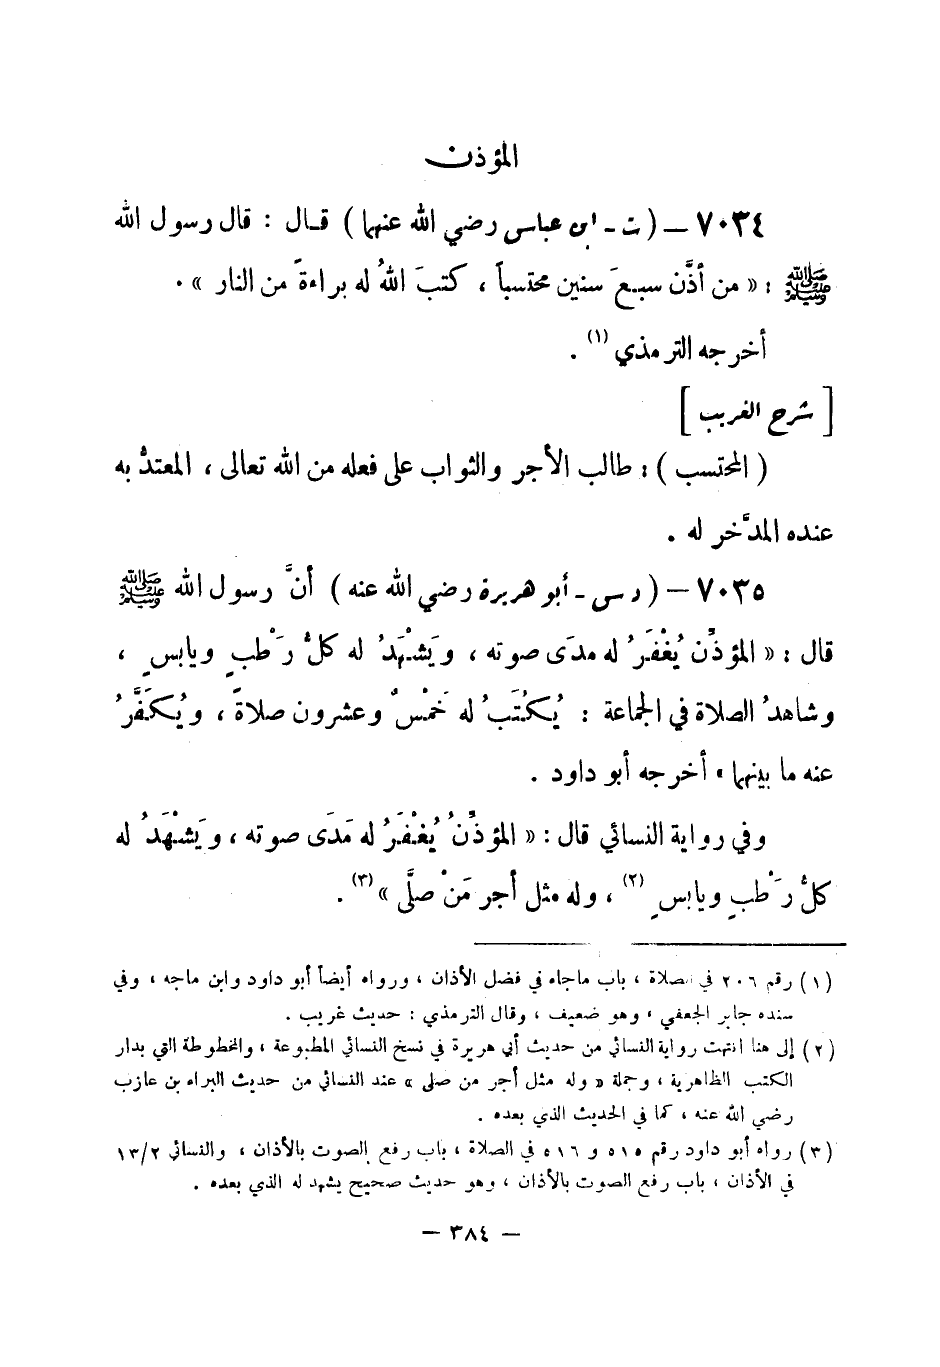 المؤذن
٧٠٣٤ – ( ت - ابن عباس رضي الله عنهما ) قال : قال رسول الله
ﷺ : « من أذَّن سبعَ سنين محتسباً ، كتبَ اللهُ له براءةً من النار » .
أخرجه الترمذي (١) .
[ شرح الغريب ]
( المحتسب ) : طالب الأجر والثواب على فعله من الله تعالى ، المعتدُّ به
عنده المدَّخر له .
٧٠٣٥ – ( د س - أبو هريرة رضي الله عنه ) أنَّ رسول الله ﷺ
قال : « المؤذِّن يُغْفَرُ له مدَى صوته ، ويَشْهَدُ له كلُّ رَطْبٍ ويابسٍ ،
وشاهدُ الصلاة في الجماعة : يُكتَبُ له خَمْسٌ وعشرون صلاةً ، ويُكَفَّرُ
عنه ما بينهما » أخرجه أبو داود .
وفي رواية النسائي قال : « المؤذِّنُ يُغْفَرُ له مَدَى صوته ، ويَشْهَدُ له
كلُّ رَطْبٍ ويابسٍ (٢) ، وله مثل أجر مَنْ صلَّى » (٣) .
(١) رقم ٢٠٦ في الصلاة ، باب ماجاء في فضل الأذان ، ورواه أيضاً أبو داود وابن ماجه ، وفي
سنده جابر الجعفي ، وهو ضعيف ، وقال الترمذي : حديث غريب .
(٢) إلى هنا انتهت رواية النسائي من حديث أبي هريرة في نسخ النسائي المطبوعة ، والمخطوطة التي بدار
الكتب الظاهرية ، وجملة « وله مثل أجر من صلى » عند النسائي من حديث البراء بن عازب
رضي الله عنه ، كما في الحديث الذي بعده .
(٣) رواه أبو داود رقم ٥١٥ و ٥١٦ في الصلاة ، باب رفع الصوت بالأذان ، والنسائي ١٣/٢
في الأذان ، باب رفع الصوت بالأذان ، وهو حديث صحيح يشهد له الذي بعده .
– ٣٨٤ –